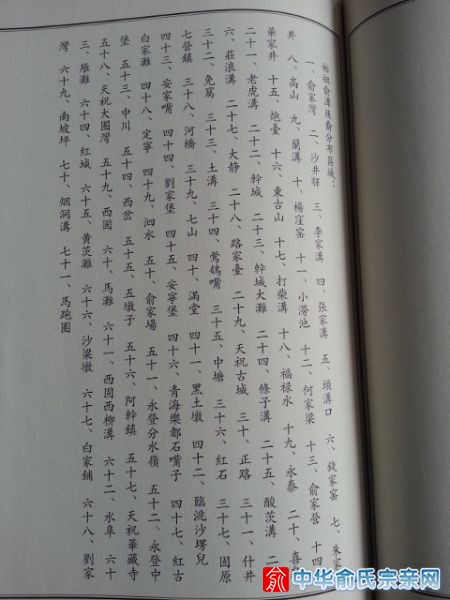 始祖俞漣後裔分布區域：
一、俞家灣 二、沙井驛 三、李家溝 四、張家溝 五、頭溝口 六、錢家窑 七、朱家
井 八、高山 九、蘭溝 十、楊窪窑 十一、小澇池 十二、何家梁 十三、俞家營 十四
華家井 十五、炮臺 十六、東古山 十七、打柴溝 十八、福禄水 十九、永泰 二十、喜
二十一、老虎溝 二十二、幹城 二十三、幹城大灘 二十四、條子溝 二十五、酸茨溝 二
六、莊浪溝 二十七、大静 二十八、路家臺 二十九、天祝古城 三十、正路 三十一、什井
三十二、免窩 三十三、土溝 三十四、鶯鴿嘴 三十五、中塘 三十六、紅石 三十七、固原
七營鎮 三十八、河橋 三十九、七山 四十 滿堂 四十一、黑土墩 四十二、臨洮沙塄兒
四十三、安家嘴 四十四、劉家堡 四十五、安寧堡 四十六、青海樂都石嘴子 四十七、紅古
白家灘 四十八、定寧 四十九、泗水 五十、俞家場 五十一、永登分水嶺 五十二、永登中
堡 五十三、中川 五十四、西岔 五十五、五墩子 五十六、阿幹鎮 五十七、天祝華藏寺
五十八、天祝大圈灣 五十九、西固 六十、馬灘 六十一、西固西柳溝 六十二、水阜 六十
三、雁灘 六十四、紅城 六十五、黄茨灘 六十六、沙梁墩 六十七、白家鋪 六十八、劉家
灣 六十九、南坡坪 七十、烟洞溝 七十一、馬跑圈
俞 中华俞氏宗亲网